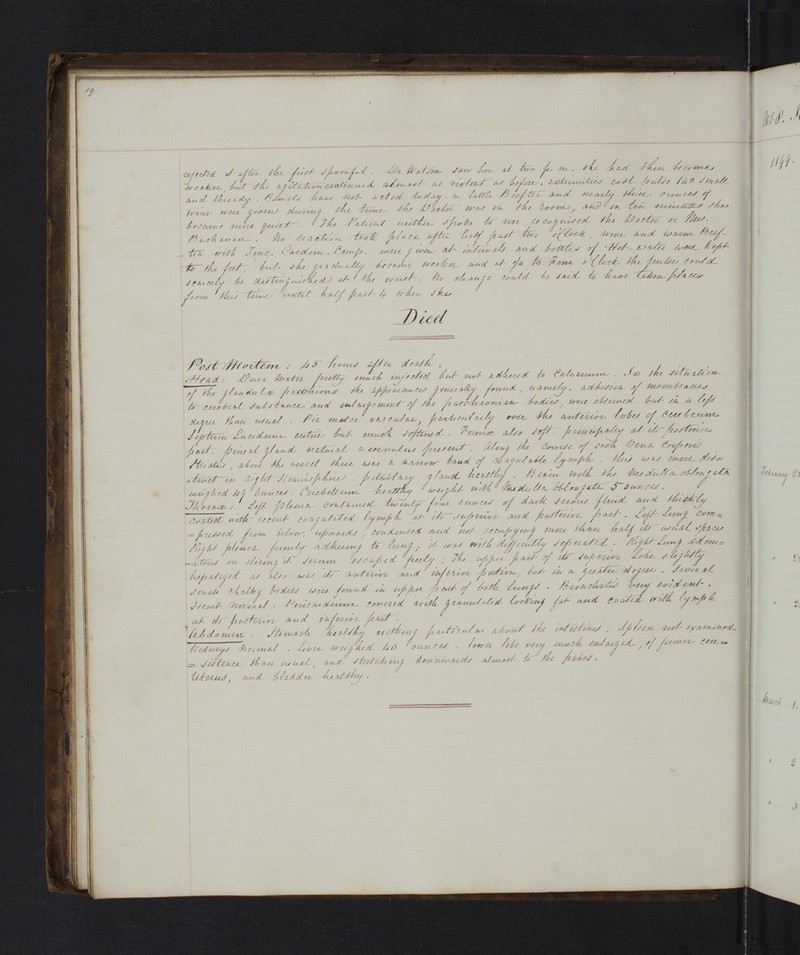 19
rejected it after the first spoonful. Dr Watson saw her at two p.m. she had then become
weaker, but the agitation continued almost as violent as before. extremities cold pulse 140 small
and thready. Bowels have not acted today. a little Beeftea and nearly three ounces of
wine were given during the time the Doctor was in the room, and in ten minutes she
became more quiet. The Patient neither spoke to nor recognised the Doctor or Mrs.
Buchanan. No reaction took place after half past two o'Clock, wine and warm Beef-
tea with Tinc. Cardom. Comp. were given at intervals and bottles of Hot water were kept
to the feet, but she gradually became weaker and at Four o'Clock the pulse could
scarcely be distinguished at the wrist. No change could be said to have taken place
from this time until half past 4 when she
Died
Post Mortem: 45 hours after death.
Head: Dura Mater pretty much injected but not adhered to Calvarium. In the situation
of the glandulæ pacchioniæ the appearances generally found, namely, adhesion of membranes
to cerebral substance and enlargement of the pacchionian bodies, were observed but in a less
degree than usual. Pia mater vascular, particularly over the anterior lobes of Cerebrum
Septum Lucidum entire but much softened. Fornix also soft principally at its posterior
part. pineal gland natural acervulus present. Along the course of each Vena Corporis
Striatis, above the vessel there was a narrow band of coagulable lymph. this was more dis=
=tinct in right Hemisphere. pituitary gland healthy. Brain with the Medulla oblongata
weighed 49 ounces. Cerebellum healthy weight with Medulla oblongata 5 ounces.
Thorax: Left pleura contained twenty four ounces of dark serous fluid and thickly
coated with recent coagulated lymph at its superior and posterior part. Left Lung com=
=pressed from below, upwards, condensed and not occupying more than half its usual space
Right pleura firmly adhering to lung; it was with difficulty seperated. Right Lung œdem=
=atous on slicing it serum escaped freely; The upper part of its superior Lobe slightly
hepatized as also was its anterior and inferior portion, but in a greater degree. Several
small chalky bodies were found in upper part of both lungs. Bronchitis very evident.
Heart normal. Pericardium covered with granulated looking fat and coated with lymph
at its posterior and inferior part.
Abdomen, Stomach healthy nothing particular about the intestines; Spleen not examined
Kidneys normal. Liver weighed 40 ounces. lower lobe very much enlarged, of firmer con=
=sistence than usual, and stretching downwards almost to the pubes.
Uterus, and bladder healthy.
1899.
February 2
March 1.
" 2
" 3